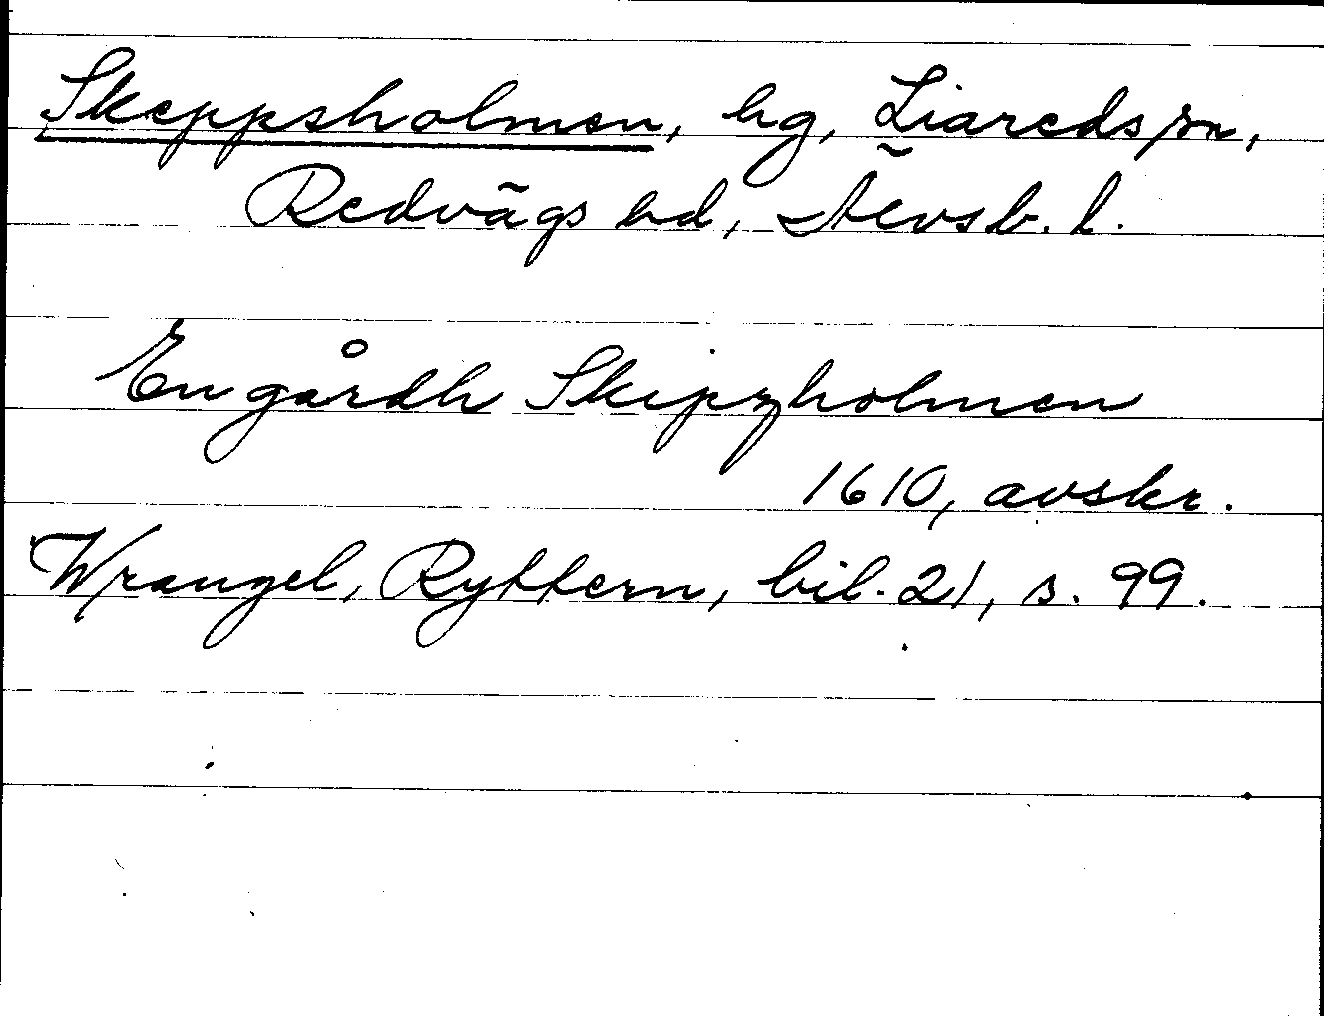 Skeppsholmen, hg, Liareds sn,
Redvägs hd, Älvsb. l.
En gårdh Skipzholmen
1610, avskr.
Wrangel, Ryttern, bil. 21, s. 99.